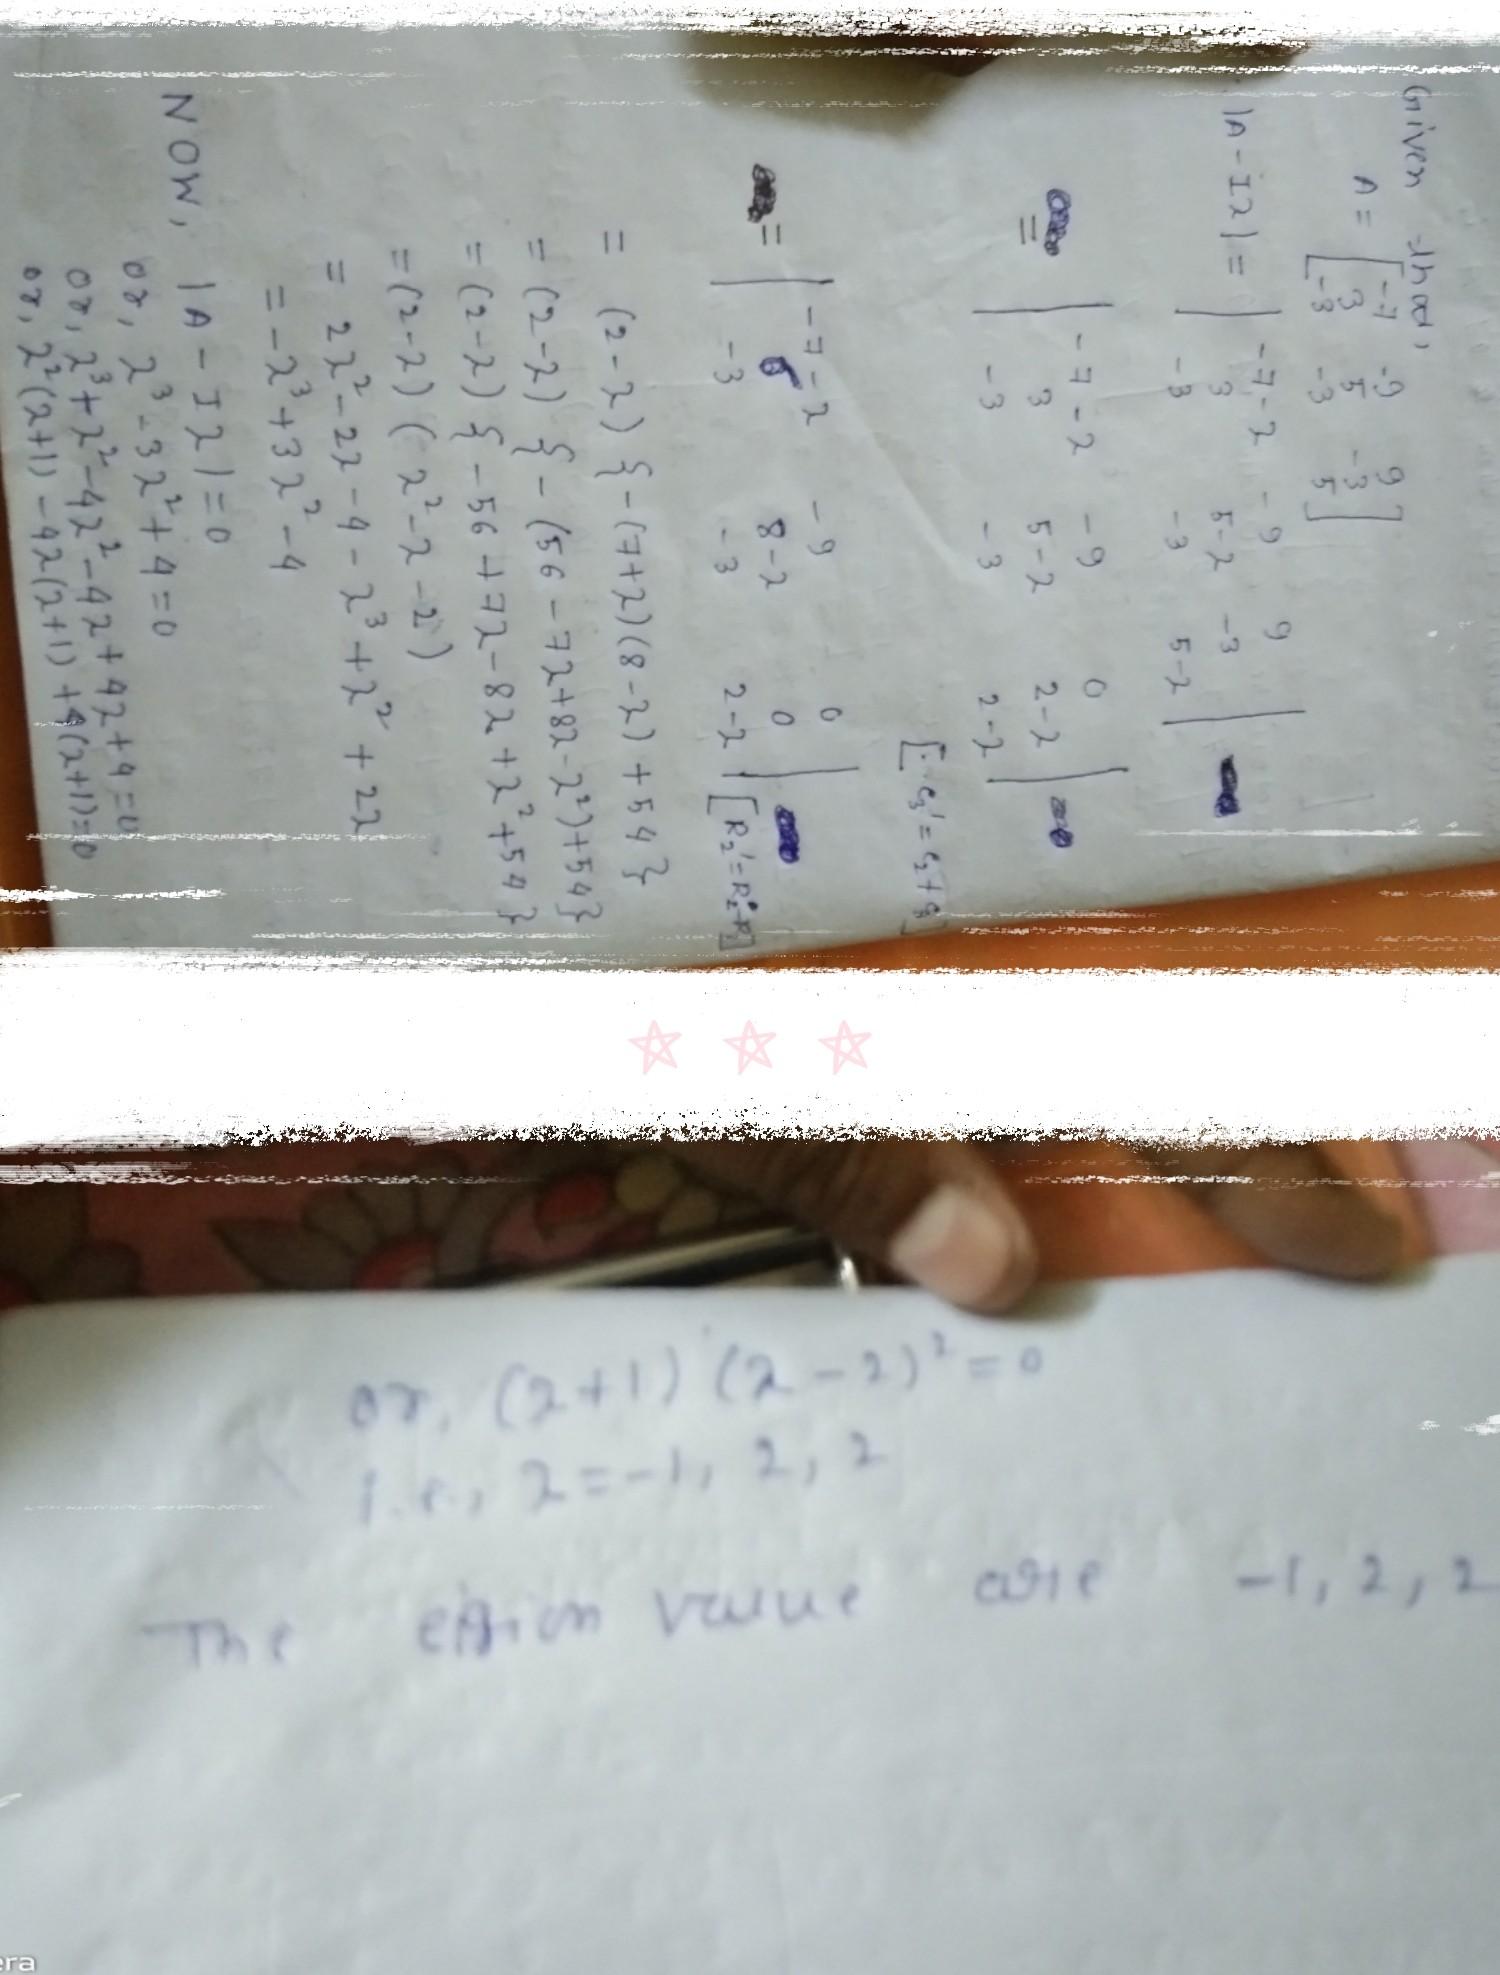 Given that,
A = [-7 -9 9
3 5 -3
-3 -3 5]
|A - Iλ| = | -7-λ -9 9
3 5-λ -3
-3 -3 5-λ |
= | -7-λ -9 0
3 5-λ 2-λ
-3 -3 2-λ |
[∵ c₃' = c₂ + c₃]
= | -7-λ -9 0
6 8-λ 0
-3 -3 2-λ | [R₂' = R₂-R₃]
= (2-λ) {-(7+λ)(8-λ) + 54}
= (2-λ) {-(56-7λ+8λ-λ²)+54}
= (2-λ) {-56+7λ-8λ+λ²+54}
= (2-λ) (λ²-λ-2)
= 2λ²-2λ-4-λ³+λ²+2λ
= -λ³+3λ²-4
NOW, |A - Iλ| = 0
or, λ³-3λ²+4=0
or, λ³+λ²-4λ²-4λ+4λ+4=0
or, λ²(λ+1)-4λ(λ+1)+4(λ+1)=0
or, (λ+1) (λ-2)² = 0
i.e., λ = -1, 2, 2
The value are -1, 2, 2